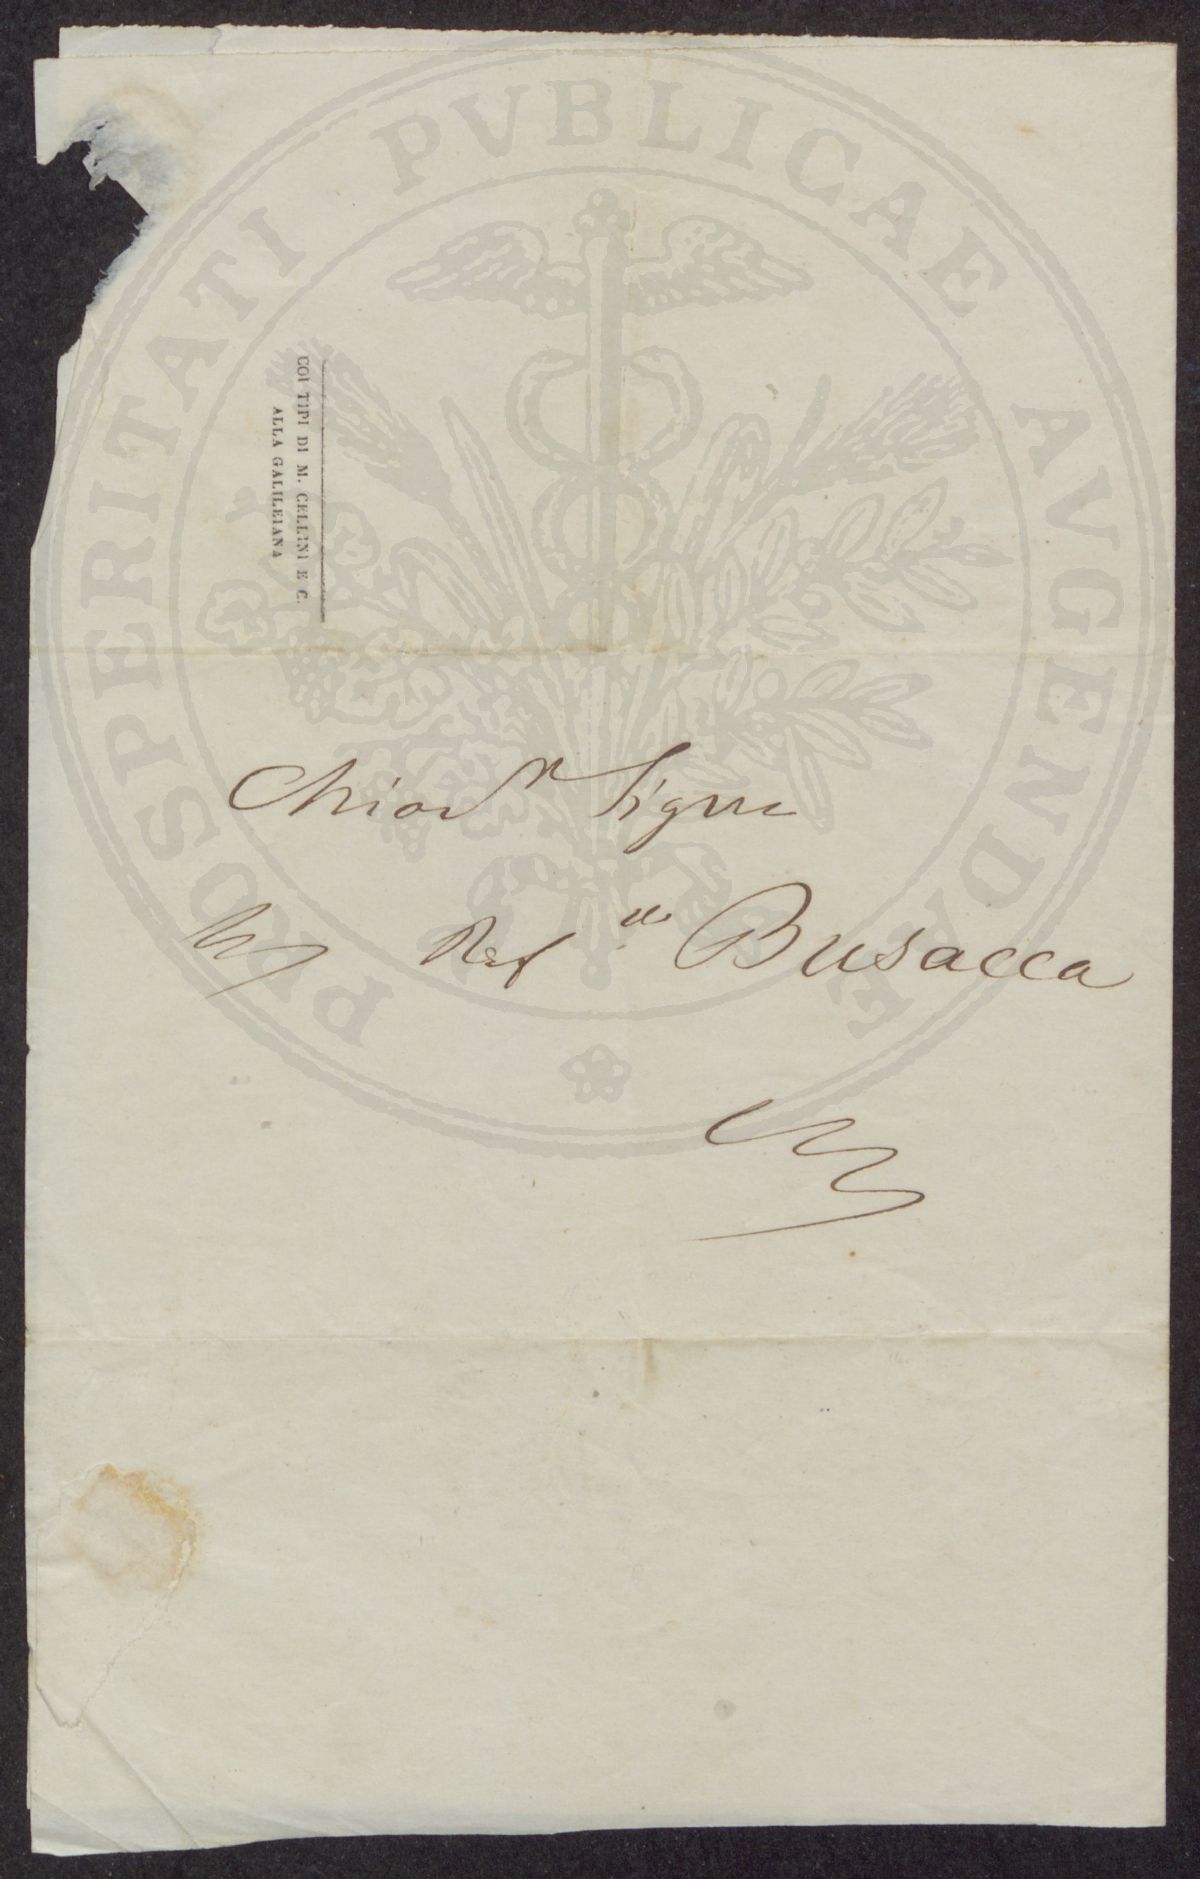 PROSPERITATI PVBLICAE AVGENDAE
COI TIPI DI M. CELLINI E C.
ALLA GALILEIANA
Signor
Raf.llo Busacca